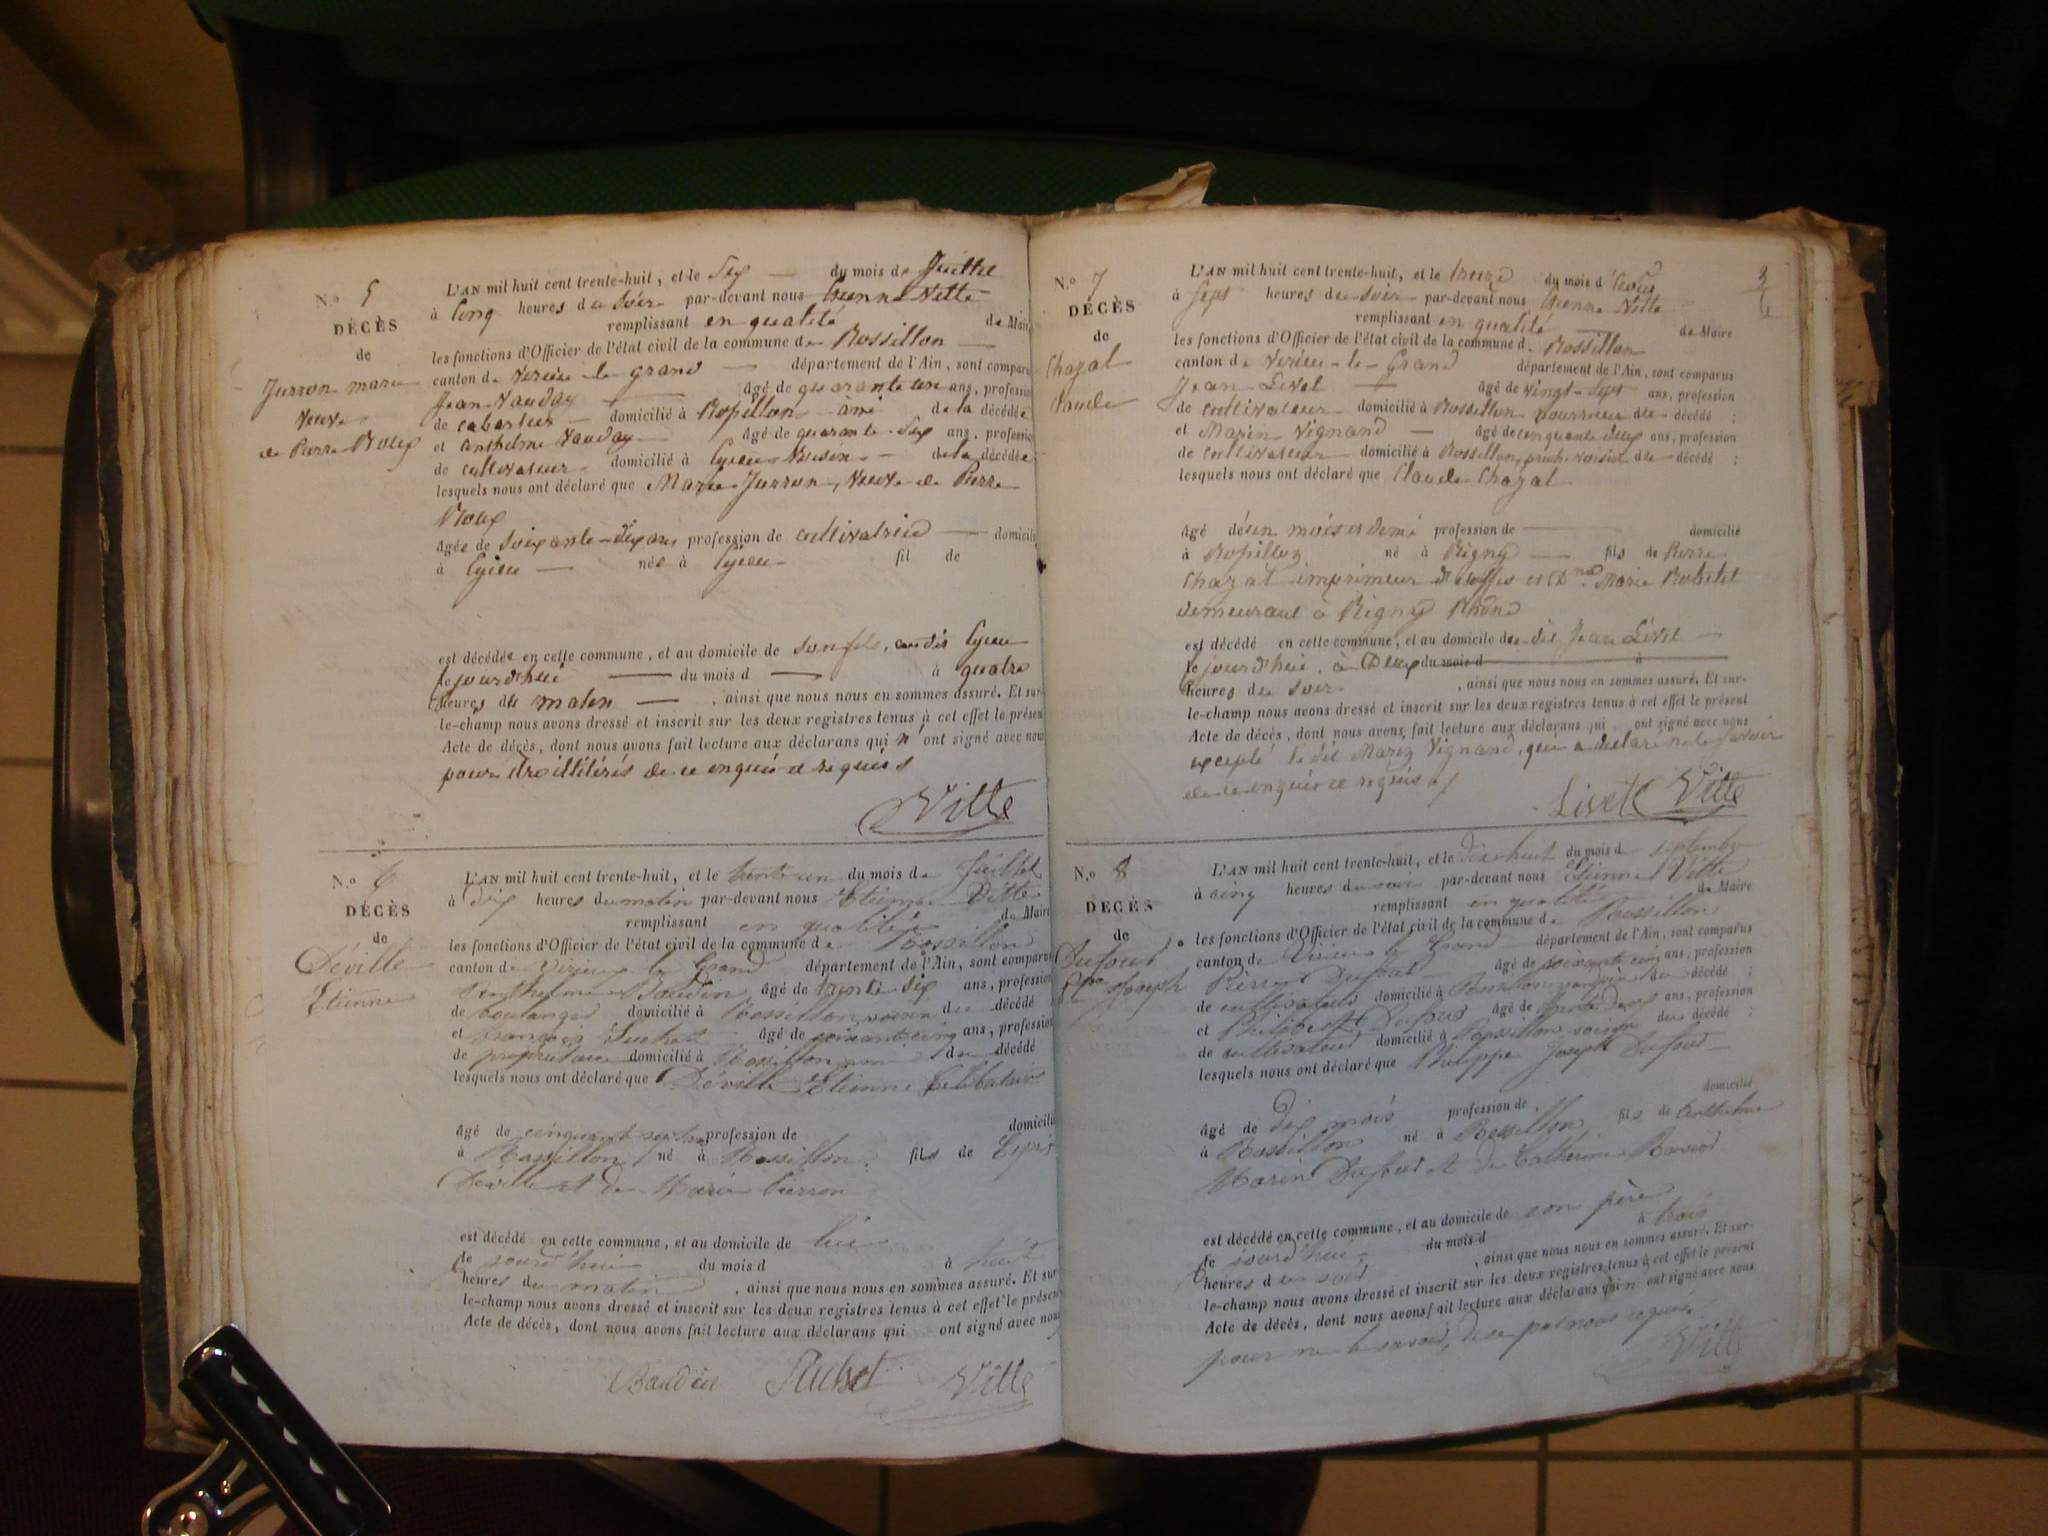 N.o 5
DÉCÈS
de
Jurron marie
veuve
de Pierre Roux
L'AN mil huit cent trente-huit, et le Six du mois de Juillet
à Cinq heures du Soir par-devant nous Etienne Vitte
remplissant en qualité de Maire
les fonctions d'Officier de l'état civil de la commune de Rossillon
canton de Virieu-le-grand département de l'Ain, sont comparu
Jean Vauday âgé de quarante un ans, profession
de cabartier domicilié à Rossillon ami de la décédée
et anthelme Vauday âgé de quarante-Six ans, profession
de cultivateur domicilié à voisin de la décédée
lesquels nous ont déclaré que Marie Jurron, veuve de Pierre
Roux
âgée de soixante-dix ans profession de cultivatrice domicili
à née à fil de
est décédée en cette commune, et au domicile de son fils, audit
Cejourd'hui du mois d à quatre
heures du matin, ainsi que nous nous en sommes assuré. Et sur-
le-champ nous avons dressé et inscrit sur les deux registres tenus à cet effet le présent
Acte de décès, dont nous avons fait lecture aux déclarans qui n'ont signé avec nous
pour être illitérés de ce enquis et requis
Vitte
N.o 6
DÉCÈS
de
Déville
Etienne
L'AN mil huit cent trente-huit, et le trente un du mois de Juillet
à dix heures du matin par-devant nous Etienne Vitte
remplissant en qualité de Maire
les fonctions d'Officier de l'état civil de la commune de Rossillon
canton de Virieu le Grand département de l'Ain, sont comparus
Anthelme Baudin âgé de trente six ans, profession
de boulanger domicilié à Rossillon voisin du décédé
et françois Suchet âgé de soixante cinq ans, profession
de propriétaire domicilié à Rossillon ami du décédé
lesquels nous ont déclaré que Déville Etienne Célibataire
âgé de cinquante profession de domicilié
à Rossillon né à Rossillon fils de
Déville et de Marie
est décédé en cette commune, et au domicile de lui
Ce jourd'hui du mois d à huit
heures du matin, ainsi que nous nous en sommes assuré. Et sur-
le-champ nous avons dressé et inscrit sur les deux registres tenus à cet effet le présent
Acte de décès, dont nous avons fait lecture aux déclarans qui ont signé avec nous
Baudin Suchet Vitte
3
N.o 7
DÉCÈS
de
Chazal
Claude
L'AN mil huit cent trente-huit, et le treize du mois d'Aout
à Sept heures du soir par-devant nous Etienne Vitte
remplissant en qualité de Maire
les fonctions d'Officier de l'état civil de la commune d. Rossillon
canton de Virieu-le-Grand département de l'Ain, sont comparus
Jean Livet âgé de vingt-sept ans, profession
de cultivateur domicilié à Rossillon nourricier du décédé ;
et Marin Vignand âgé de cinquante deux ans, profession
de cultivateur domicilié à Rossillon, proche voisin du décédé ;
lesquels nous ont déclaré que Claude Chazal
âgé d'un mois et demi profession de domicilié
à Rossillon né à Rigny fils de Pierre
Chazal imprimeur d'étoffes et Marie
demeurant à Rigny Rhône
est décédé en cette commune, et au domicile du dit Jean Livet
Cejourd'hui, à Deux du mois d à
heures du soir, ainsi que nous nous en sommes assuré. Et sur-
le-champ nous avons dressé et inscrit sur les deux registres tenus à cet effet le présent
Acte de décès, dont nous avons fait lecture aux déclarans qui ont signé avec nous
excepté le dit Marin Vignand, qui a déclaré ne le savoir
de ce enquis et requis
Livet Vitte
N.o 8
DÉCÈS
de
Dufour
Ppe Joseph
L'AN mil huit cent trente-huit, et le dix huit du mois d septembre
à cinq heures du soir par-devant nous Etienne Vitte
remplissant en qualité de Maire
les fonctions d'Officier de l'état civil de la commune de Rossillon
canton de Virieu le Grand département de l'Ain, sont comparus
Pierre Dufour âgé de soixante cinq ans, profession
de cultivateur domicilié à Rossillon du décédé ;
et Philibert Dufour âgé de trente deux ans, profession
de cultivateur domicilié à Rossillon voisin du décédé :
lesquels nous ont déclaré que Philippe Joseph Dufour
âgé de dix mois profession de domicilié
à Rossillon né à Rossillon fils de Anthelme
Marin Dufour et de Catherine
est décédé en cette commune, et au domicile de son père
Ce jourd'hui du mois d à trois
heures du soir, ainsi que nous nous en sommes assuré. Et sur-
le-champ nous avons dressé et inscrit sur les deux registres tenus à cet effet le présent
Acte de décès, dont nous avons fait lecture aux déclarans qui n'ont signé avec nous
pour ne le savoir, de ce par nous requis
Vitte